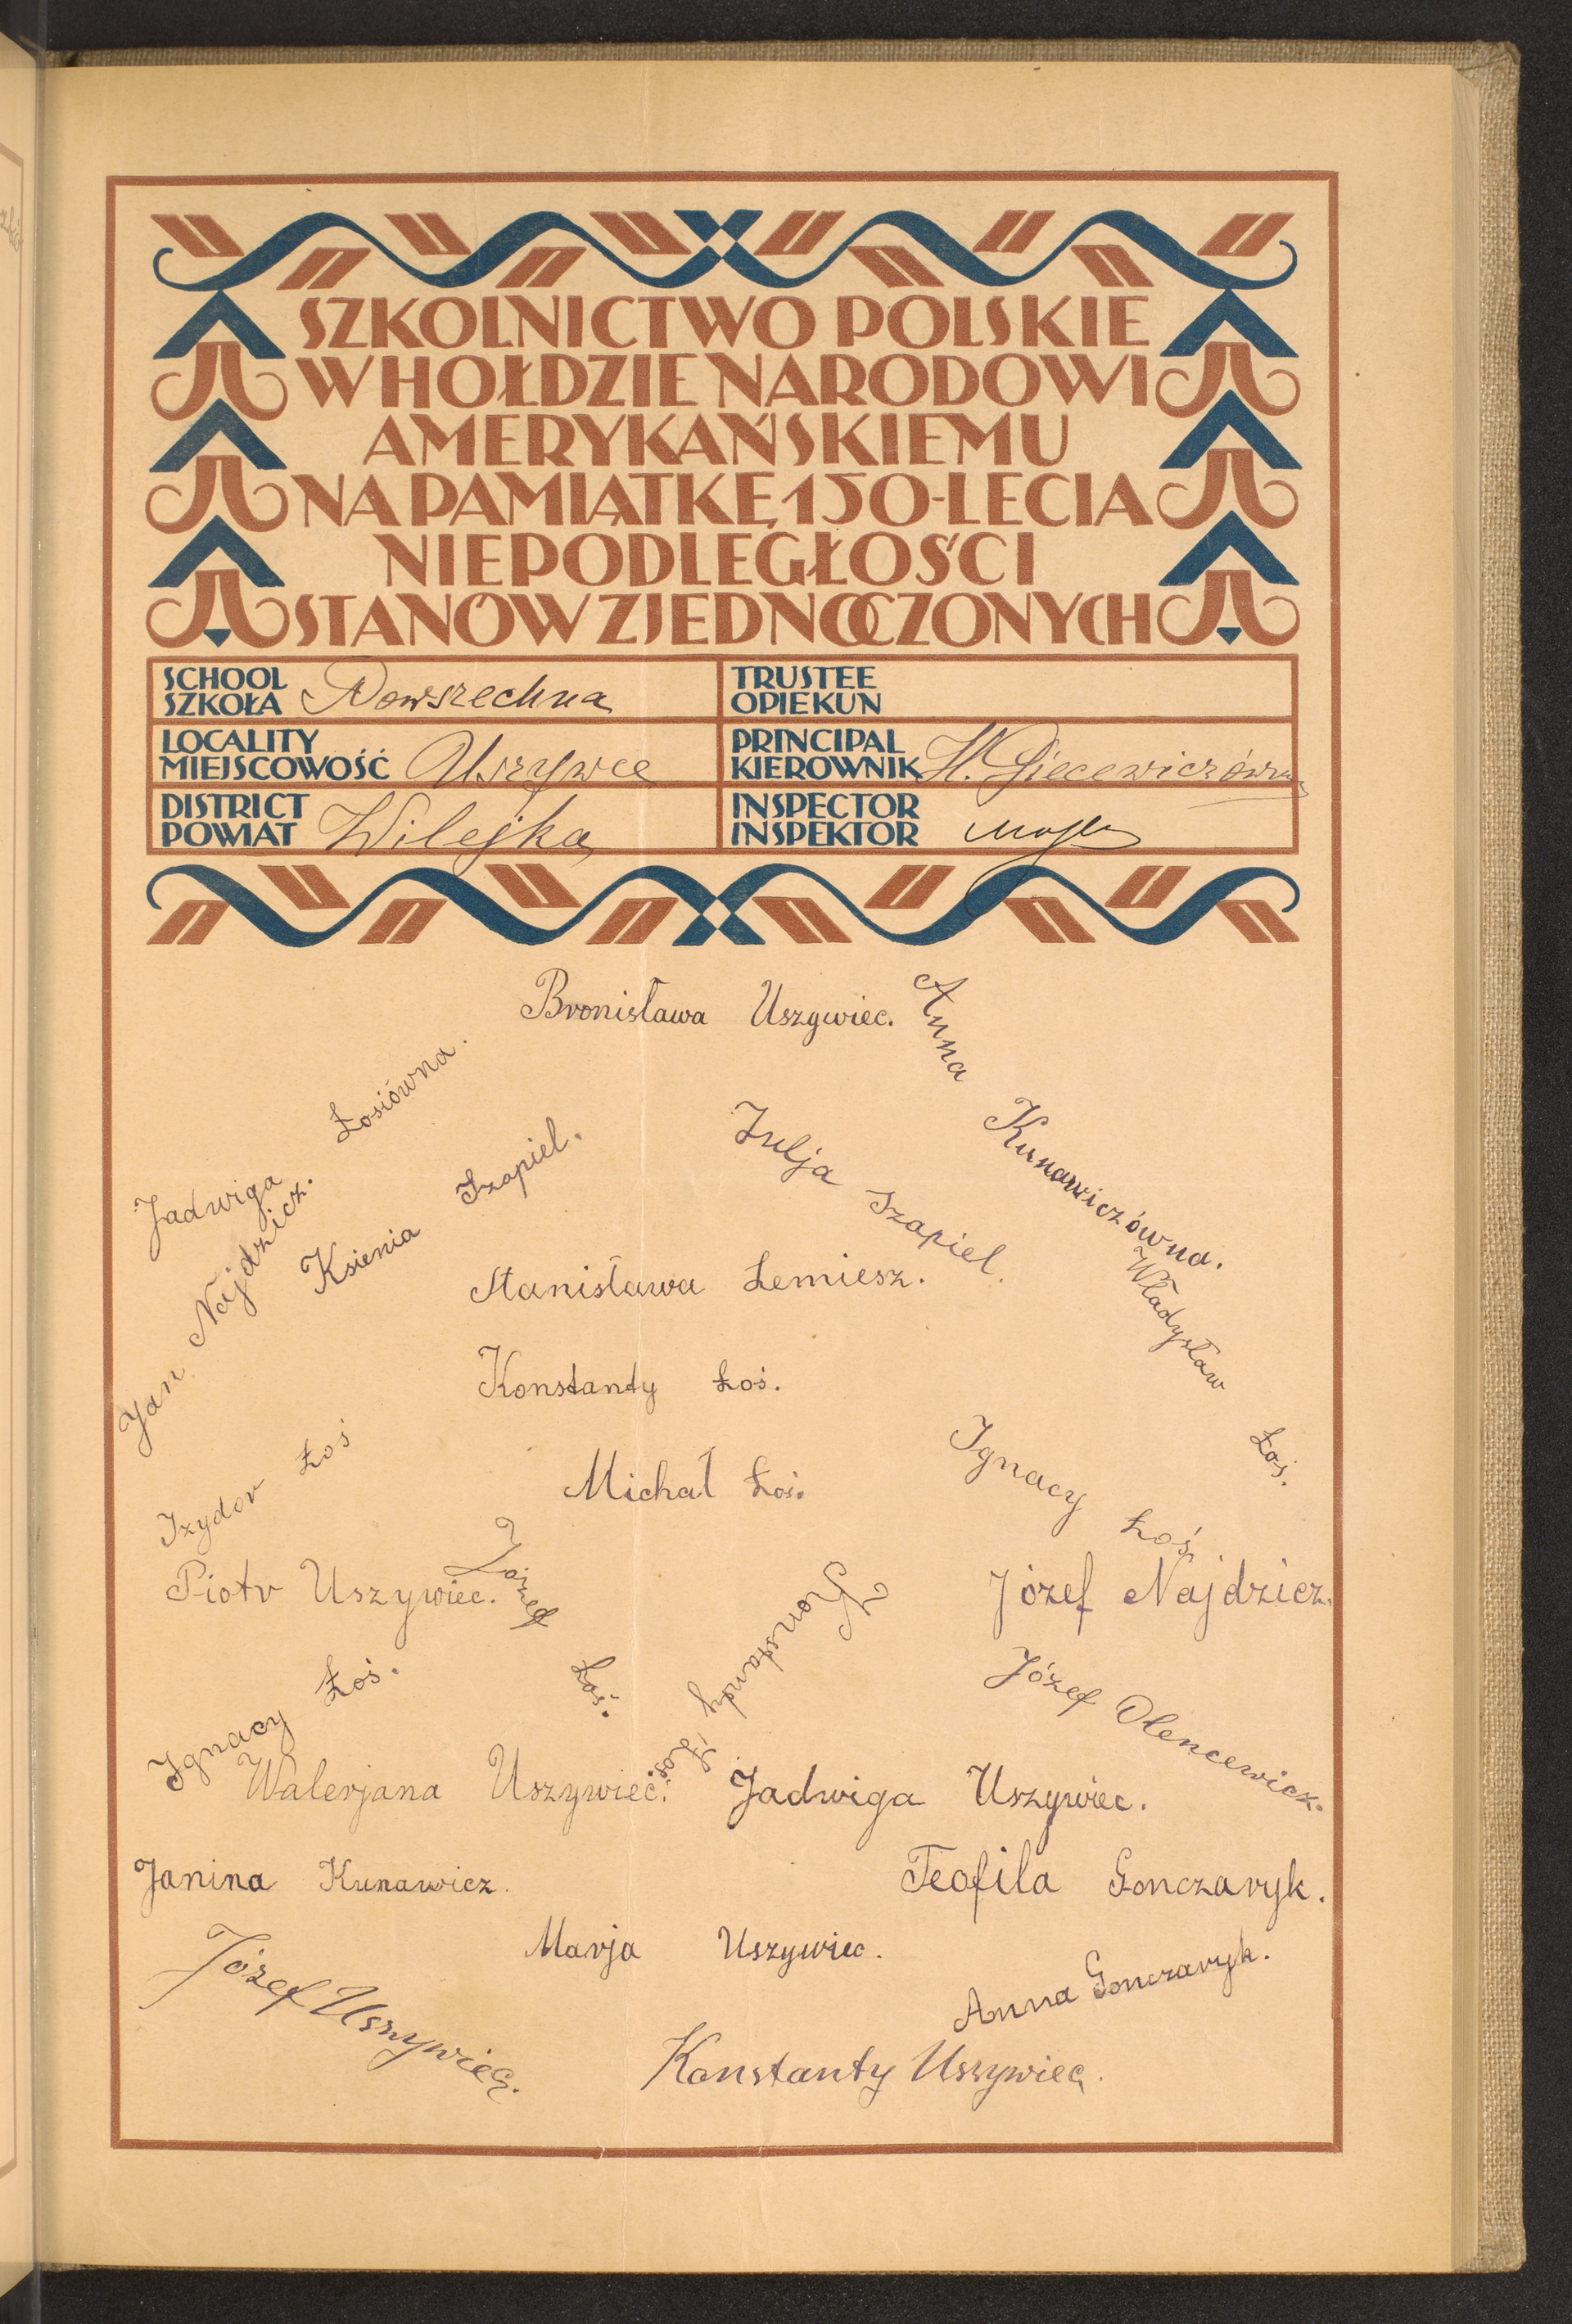 SZKOLNICTWO POLSKIE
W HOŁDZIE NARODOWI
AMERYKAŃSKIEMU
NA PAMIĄTKĘ 150-LECIA
NIEPODLEGŁOŚCI
STANÓW ZJEDNOCZONYCH
SCHOOL
SZKOŁA Powszechna
TRUSTEE
OPIEKUN
LOCALITY
MIEJSCOWOŚĆ Uszywce
PRINCIPAL
KIEROWNIK H. Giecewiczówna
DISTRICT
POWIAT Wilejka
INSPECTOR
INSPEKTOR
Bronisława Uszywiec.
Anna Kunawiczówna.
Jadwiga Łosiówna.
Ksienia Szapiel.
Julja Szapiel.
Jan Najdzicz.
Stanisława Łemiesz.
Władysław Łoś.
Konstanty Łoś.
Izydor Łoś
Michał Łoś.
Ignacy Łoś.
Piotr Uszywiec.
Józef Łoś.
Konstanty Łoś.
Józef Najdzicz.
Ignacy Łoś.
Józef Olencewicz.
Walerjana Uszywiec.
Jadwiga Uszywiec.
Janina Kunawicz.
Teofila Gonczaryk.
Marja Uszywiec.
Józef Uszywiec.
Anna Gonczaryk.
Konstanty Uszywiec.